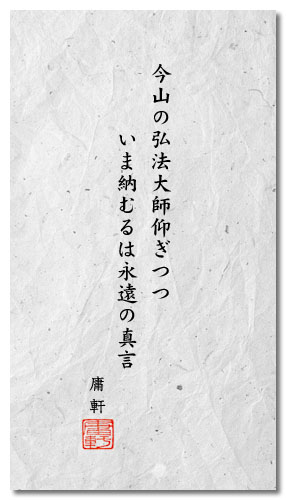 今山の弘法大師仰ぎつつ
いま納むるは永遠の真言
庸軒